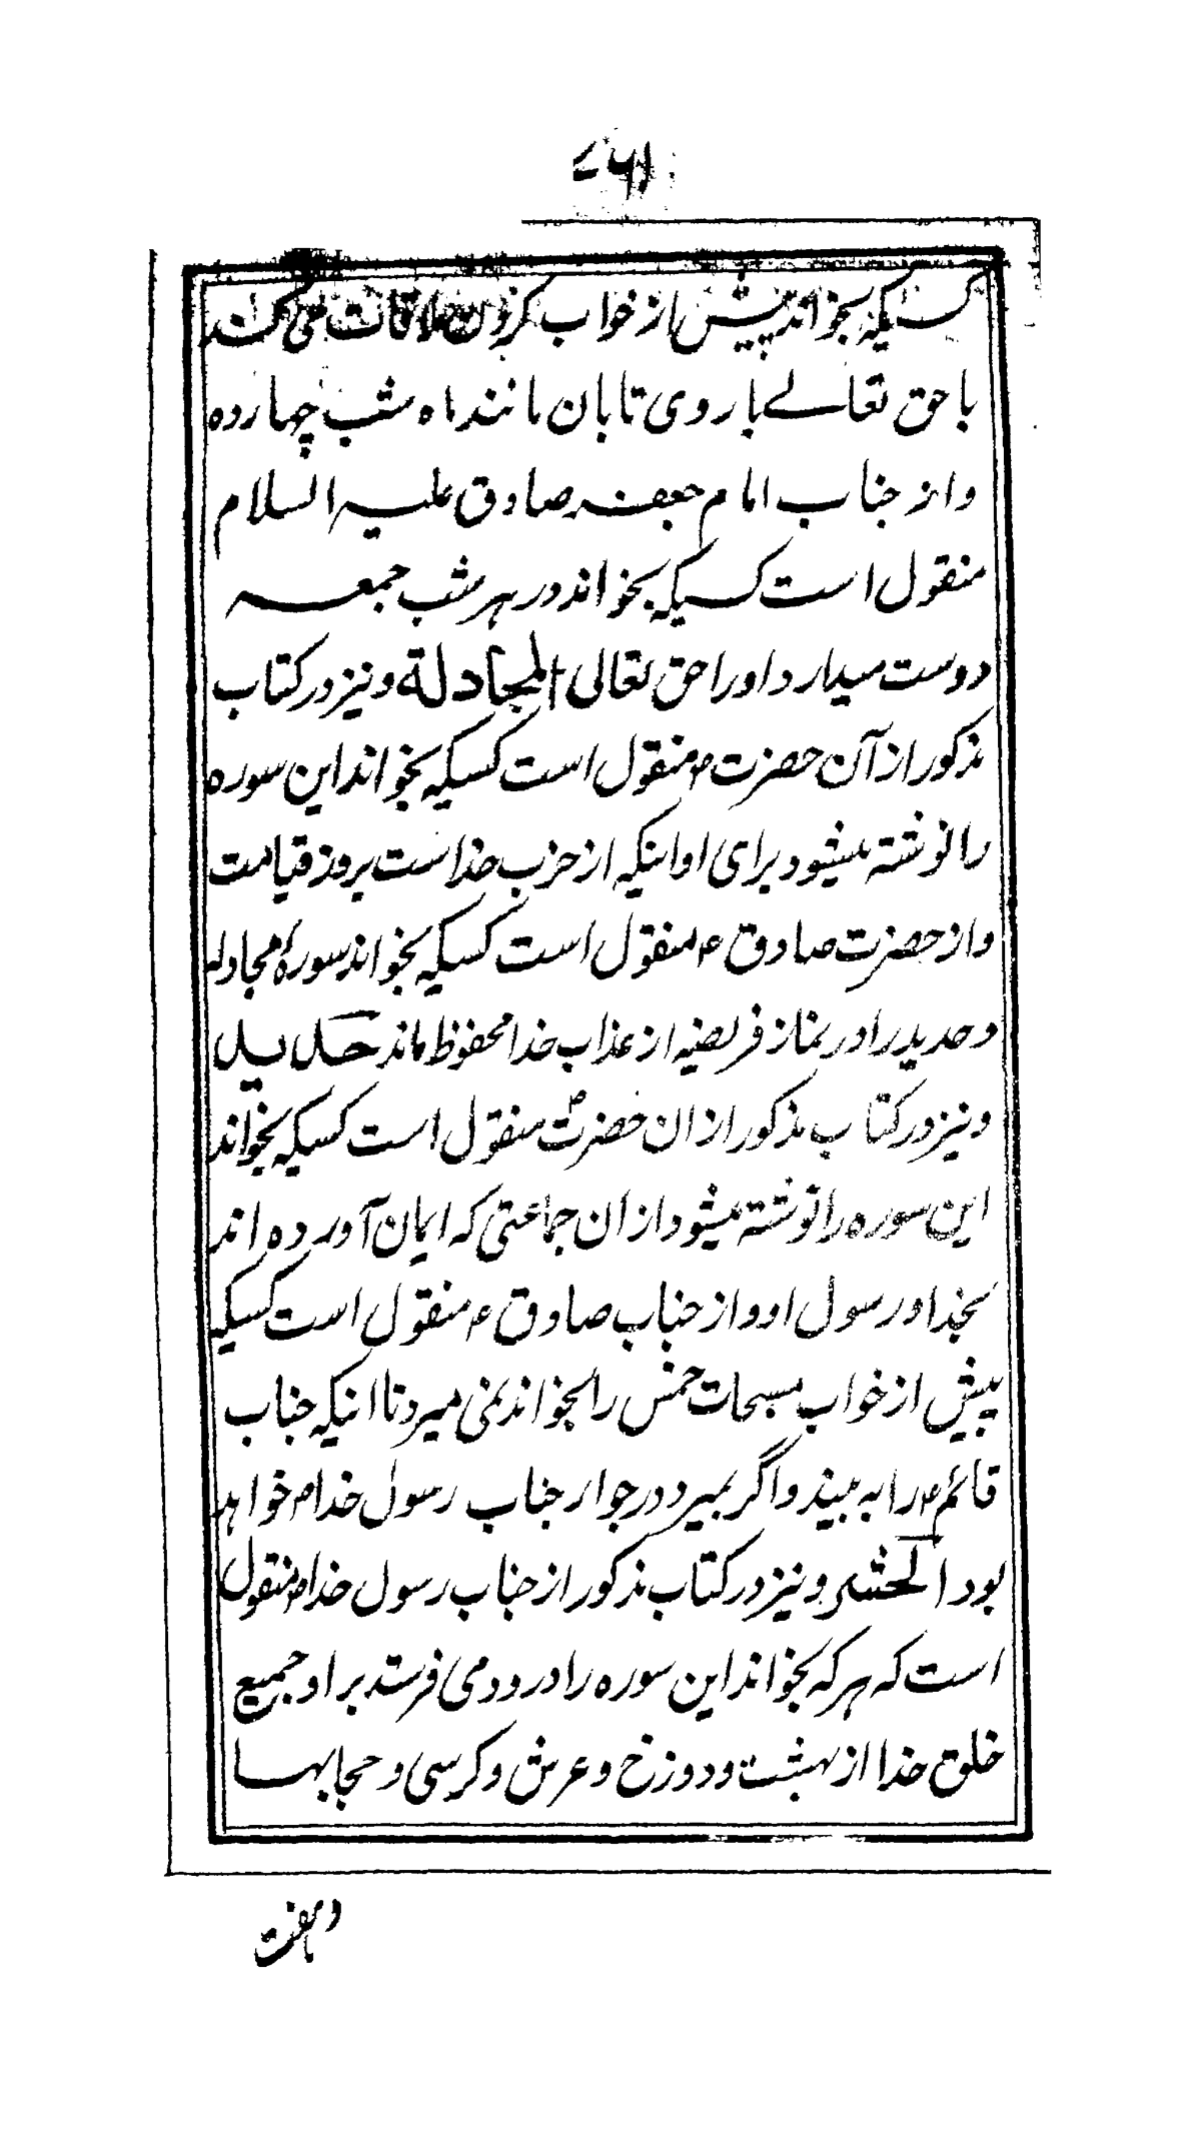 کسیکه بخواند پیش از خواب کردن ملاقات می کند
با حق تعالے با روی تابان مانند ماه شب چهارده
و از جناب امام جعفر صادق علیه السلام
منقول است کسیکه بخواند در هر شب جمعه
دوست میدارد او را حق تعالی المجادلة و نیز در کتاب
مذکور از آن حضرت ص منقول است کسیکه بخواند این سوره
را نوشته میشود برای او اینکه از حزب خداست بروز قیامت
و از حضرت صادق ع منقول است کسیکه بخواند سورۀ مجادله
و حدید را در نماز فریضه از عذاب خدا محفوظ ماند حدید
و نیز در کتاب مذکور از ان حضرت ص منقول است کسیکه بخواند
این سوره را نوشته میشود از ان جماعتی که ایمان آورده اند
بخدا و رسول او و از جناب صادق ع منقول است کسیکه
پیش از خواب مسبحات خمس را بخواند نمی میرد تا اینکه جناب
قائم ع را به بیند و اگر بمیرد در جوار جناب رسول خدا ص خواهد
بود الحشر و نیز در کتاب مذکور از جناب رسول خدا ص منقول
است که هر که بخواند این سوره را درود می فرستد بر او جمیع
خلق خدا از بهشت و دوزخ و عرش و کرسی و حجابها
و هفت